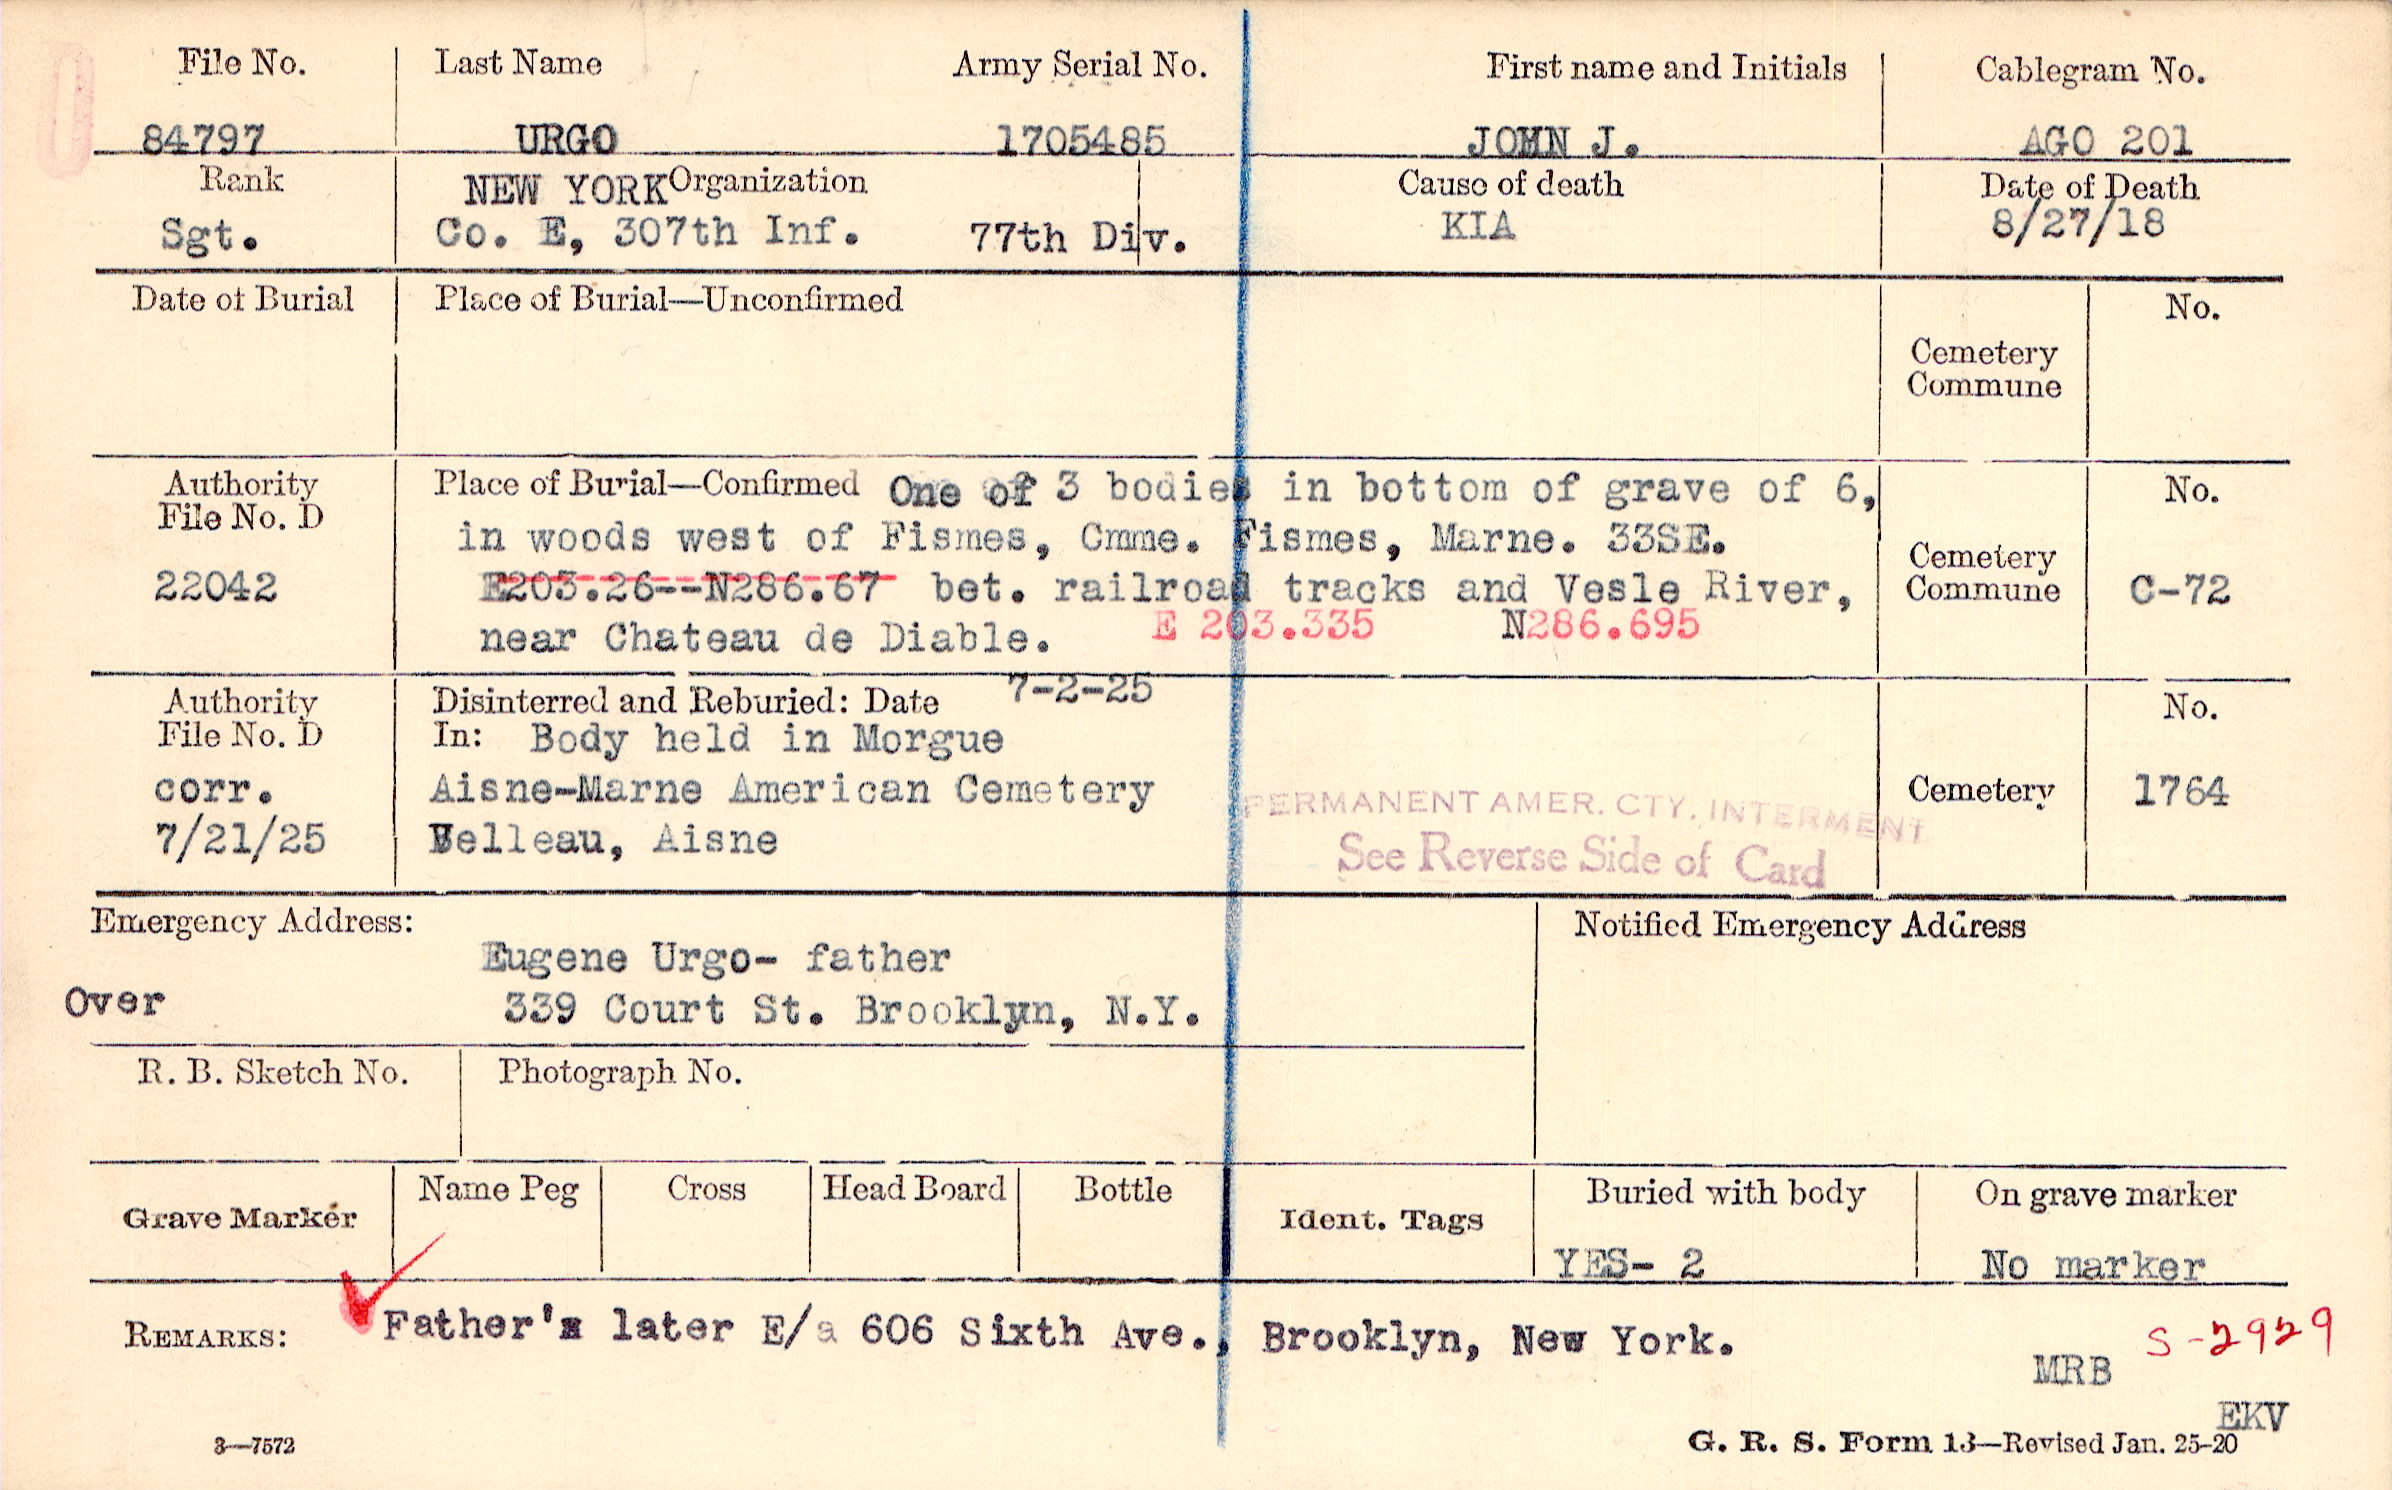 File No. Last Name Army Serial No. First name and Initials Cablegram No.
84797 URGO 1705485 JOMN J. AGO 201
Rank NEW YORK Organization Cause of death Date of Death
Sgt. Co. E, 307th Inf. 77th Div. KIA 8/27/18
Date of Burial Place of Burial—Unconfirmed No.
Cemetery
Commune
Authority Place of Burial—Confirmed One of 3 bodies in bottom of grave of 6, No.
File No. D in woods west of Fismes, Cmme. Fismes, Marne. 33SE.
Cemetery
22042 E203.26--N286.67 bet. railroad tracks and Vesle River, Commune C-72
E 203.335 N286.695
near Chateau de Diable.
Authority Disinterred and Reburied: Date 7-2-25 No.
File No. D In: Body held in Morgue
corr. Aisne-Marne American Cemetery Cemetery 1764
PERMANENT AMER. CTY. INTERMENT
7/21/25 Belleau, Aisne See Reverse Side of Card
Emergency Address: Notified Emergency Address
Eugene Urgo- father
Over 339 Court St. Brooklyn, N.Y.
R. B. Sketch No. Photograph No.
Name Peg Cross Head Board Bottle Buried with body On grave marker
Grave Marker Ident. Tags
YES- 2 No marker
REMARKS: Father's later E/a 606 Sixth Ave., Brooklyn, New York. S-2929
MRB
EKV
3—7572 G. R. S. Form 13—Revised Jan. 25-20